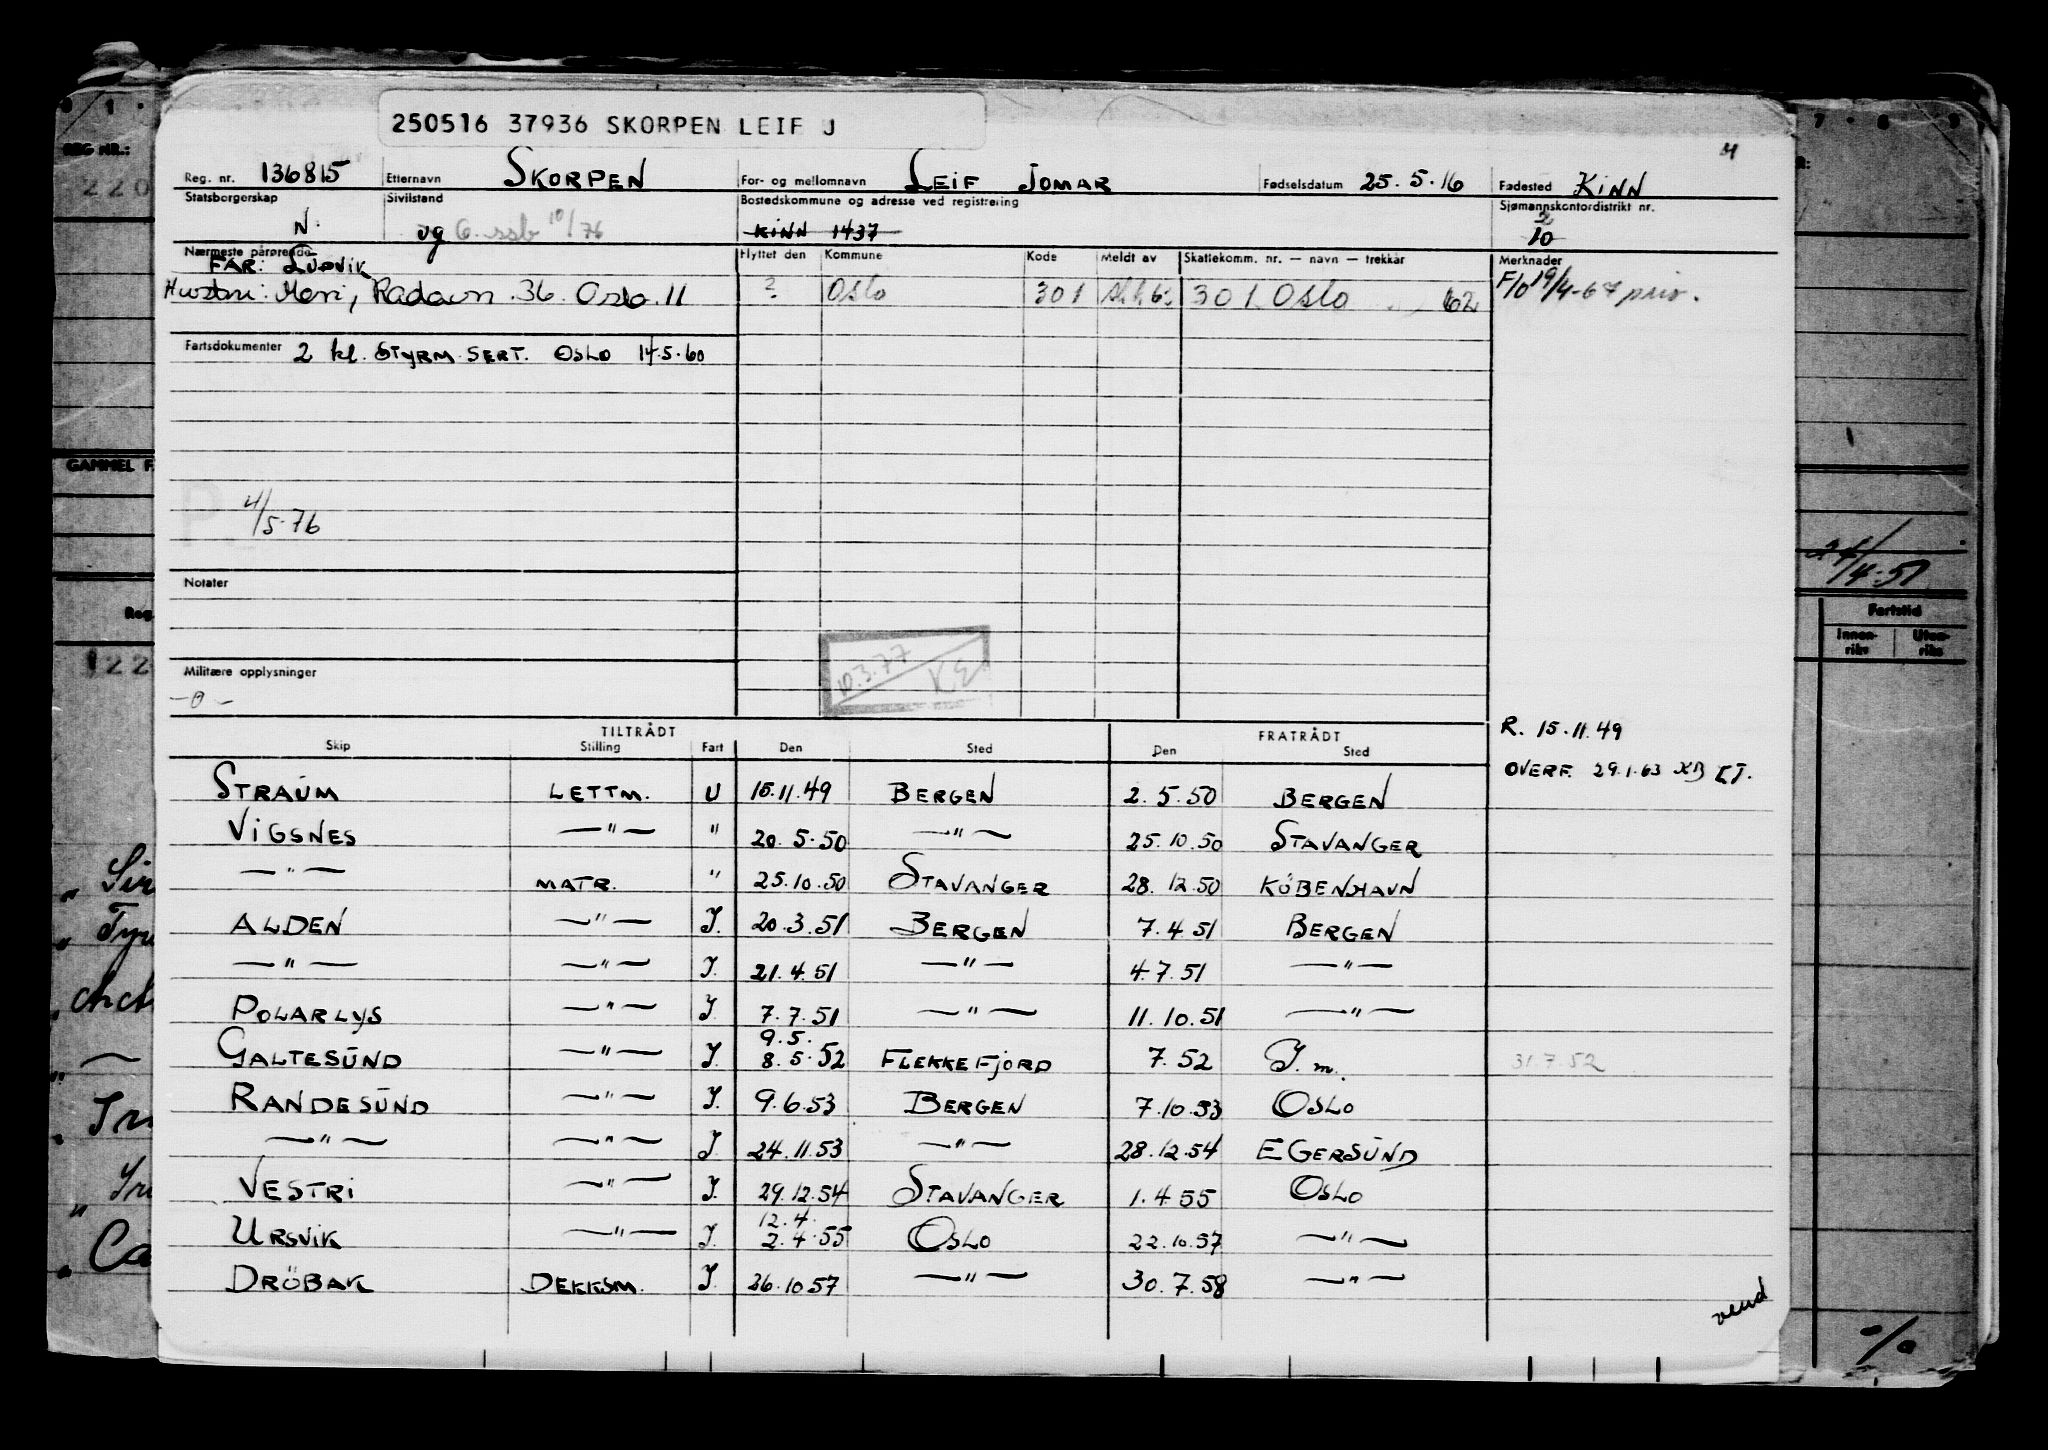 250516 37936 SKORPEN LEIF J
Reg. nr. 136815 Etternavn SKORPEN For- og mellomnavn LEIF JOMAR Fødselsdatum 25.5.16 Fødested KINN
Statsborgerskap N. Sivilstand ug 6. ssb 10/76 Bostedskommune og adresse ved registrering KINN 1437 Sjømannskontordistrikt nr. 2 10
Nærmeste pårørende FAR: LUDVIK
Hustru: Meri, Radavn. 36. Oslo. 11
Flyttet den Kommune Kode Meldt av Skattekomm. nr. — navn — trekkår Merknader
? Oslo 301 301 Oslo 62 F/o 19/4-67 priv.
Fartsdokumenter 2 kl. STYRM. SERT. OSLO 14.5.60
4/5-76
Notater
10.3.77 KE
Militære opplysninger
—0—
TILTRÅDT FRATRÅDT
Skip Stilling Fart Den Sted Den Sted
R. 15.11.49
OVERF. 29.1.63
STRAUM LETTM. U 15.11.49 BERGEN 2.5.50 BERGEN
VIGSNES —"— " 20.5.50 —"— 25.10.50 STAVANGER
—"— MATR. " 25.10.50 STAVANGER 28.12.50 KÖBENHAVN
ALDEN —"— I. 20.3.51 BERGEN 7.4.51 BERGEN
—"— —"— I. 21.4.51 —"— 4.7.51 —"—
POLARLYS —"— I. 7.7.51 —"— 11.10.51 —"—
GALTESUND —"— I. 9.5. 8.5.52 FLEKKEFJORD 7.52 I.m. 31.7.52
RANDESUND —"— I. 9.6.53 BERGEN 7.10.53 OSLO
—"— —"— I. 24.11.53 —"— 28.12.54 EGERSUND
VESTRI —"— I. 29.12.54 STAVANGER 1.4.55 OSLO
URSVIK —"— I. 12.4. 2.4.55 OSLO 22.10.57 —"—
DRÖBAK DEKKSM. I. 26.10.57 —"— 30.7.58 —"—
vend
REG NR.:
220
GAMMEL F
Reg.
122
24/4-51
Fartstid
Innen-riks Uten-riks